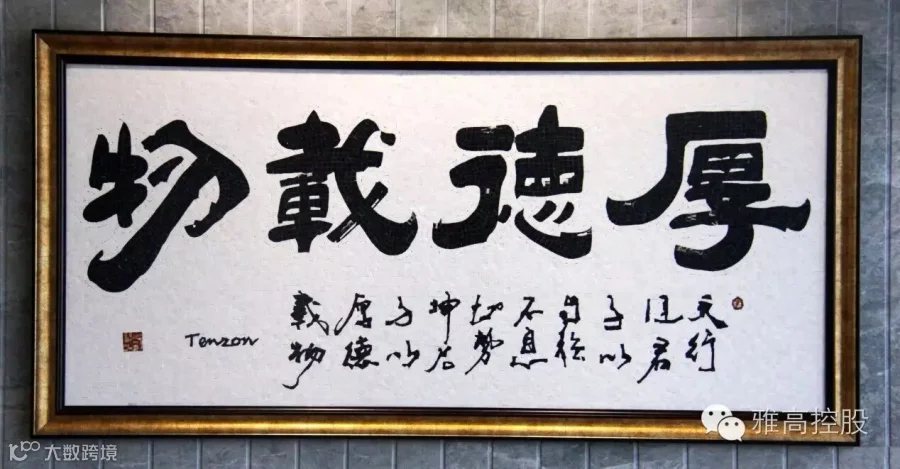 厚德載物
天行
健君
子以
自強
不息
地勢
坤君
子以
厚德
載物
Tenzon
雅高控股
大数跨境